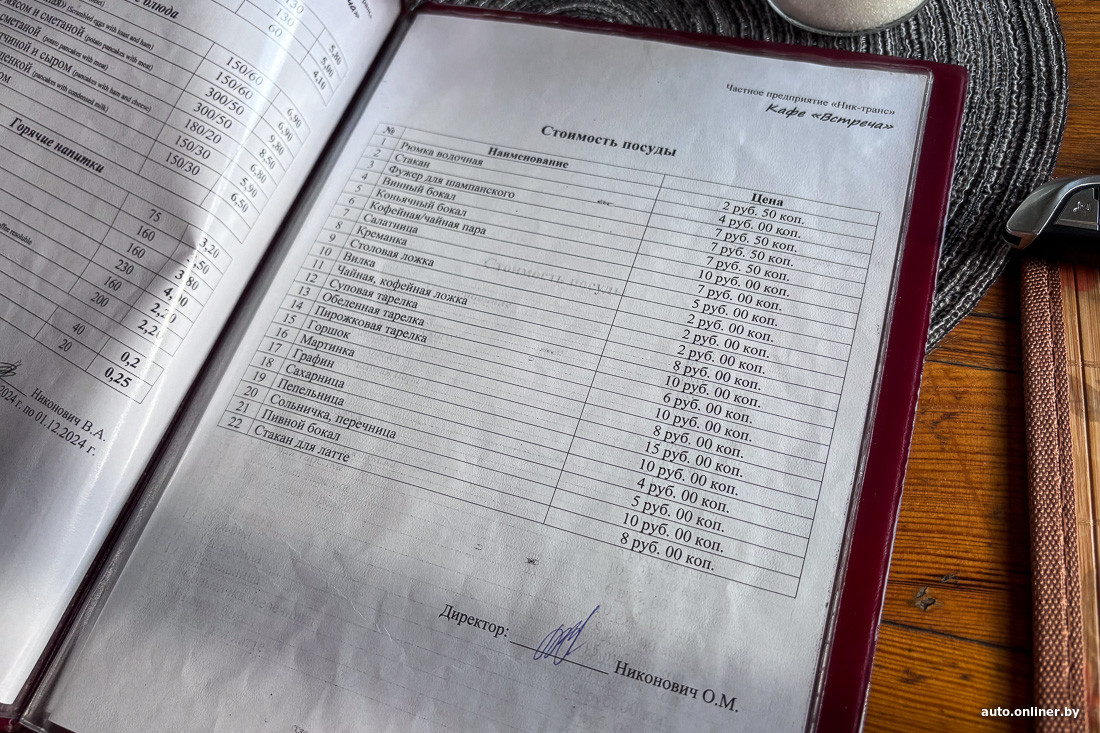 блюда
(Scrambled eggs with toast and ham)
мясом и сметаной (potato pancakes with meat)
сметаной (potato pancakes with meat)
тчиной и сыром (pancakes with ham and cheese)
щенкой (pancakes with condensed milk)
130
60
150/60
150/60
300/50
300/50
180/20
150/30
150/30
5,80
5,80
4,10
6,90
6,90
9,80
8,50
6,80
5,90
6,50
Горячие напитки
75
160
160
230
160
200
40
20
3,20
3,80
2,20
0,2
0,25
Никонович В.А.
2024 г. по 01.12.2024 г.
Частное предприятие «Ник-транс»
Кафе «Встреча»
Стоимость посуды
№ Наименование
1 Рюмка водочная
2 Стакан
3 Фужер для шампанского
4 Винный бокал
5 Коньячный бокал
6 Кофейная/чайная пара
7 Салатница
8 Креманка
9 Столовая ложка
10 Вилка
11 Чайная, кофейная ложка
12 Суповая тарелка
13 Обеденная тарелка
14 Пирожковая тарелка
15 Горшок
16 Мартинка
17 Графин
18 Сахарница
19 Пепельница
20 Сольничка, перечница
21 Пивной бокал
22 Стакан для латте
Цена
2 руб. 50 коп.
4 руб. 00 коп.
7 руб. 50 коп.
7 руб. 50 коп.
10 руб. 00 коп.
7 руб. 00 коп.
5 руб. 00 коп.
2 руб. 00 коп.
2 руб. 00 коп.
2 руб. 00 коп.
8 руб. 00 коп.
10 руб. 00 коп.
6 руб. 00 коп.
10 руб. 00 коп.
8 руб. 00 коп.
15 руб. 00 коп.
10 руб. 00 коп.
4 руб. 00 коп.
5 руб. 00 коп.
10 руб. 00 коп.
8 руб. 00 коп.
Директор: Никонович О.М.
auto.onliner.by